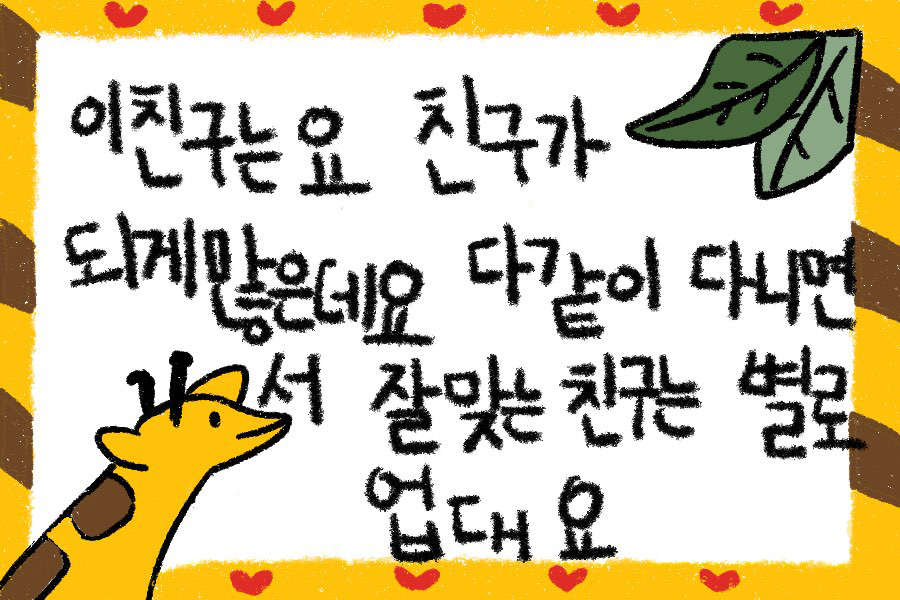 이친구는요 친구가
되게많은데요 다같이 다니면
서 잘맞는 친구는 별로
업대요